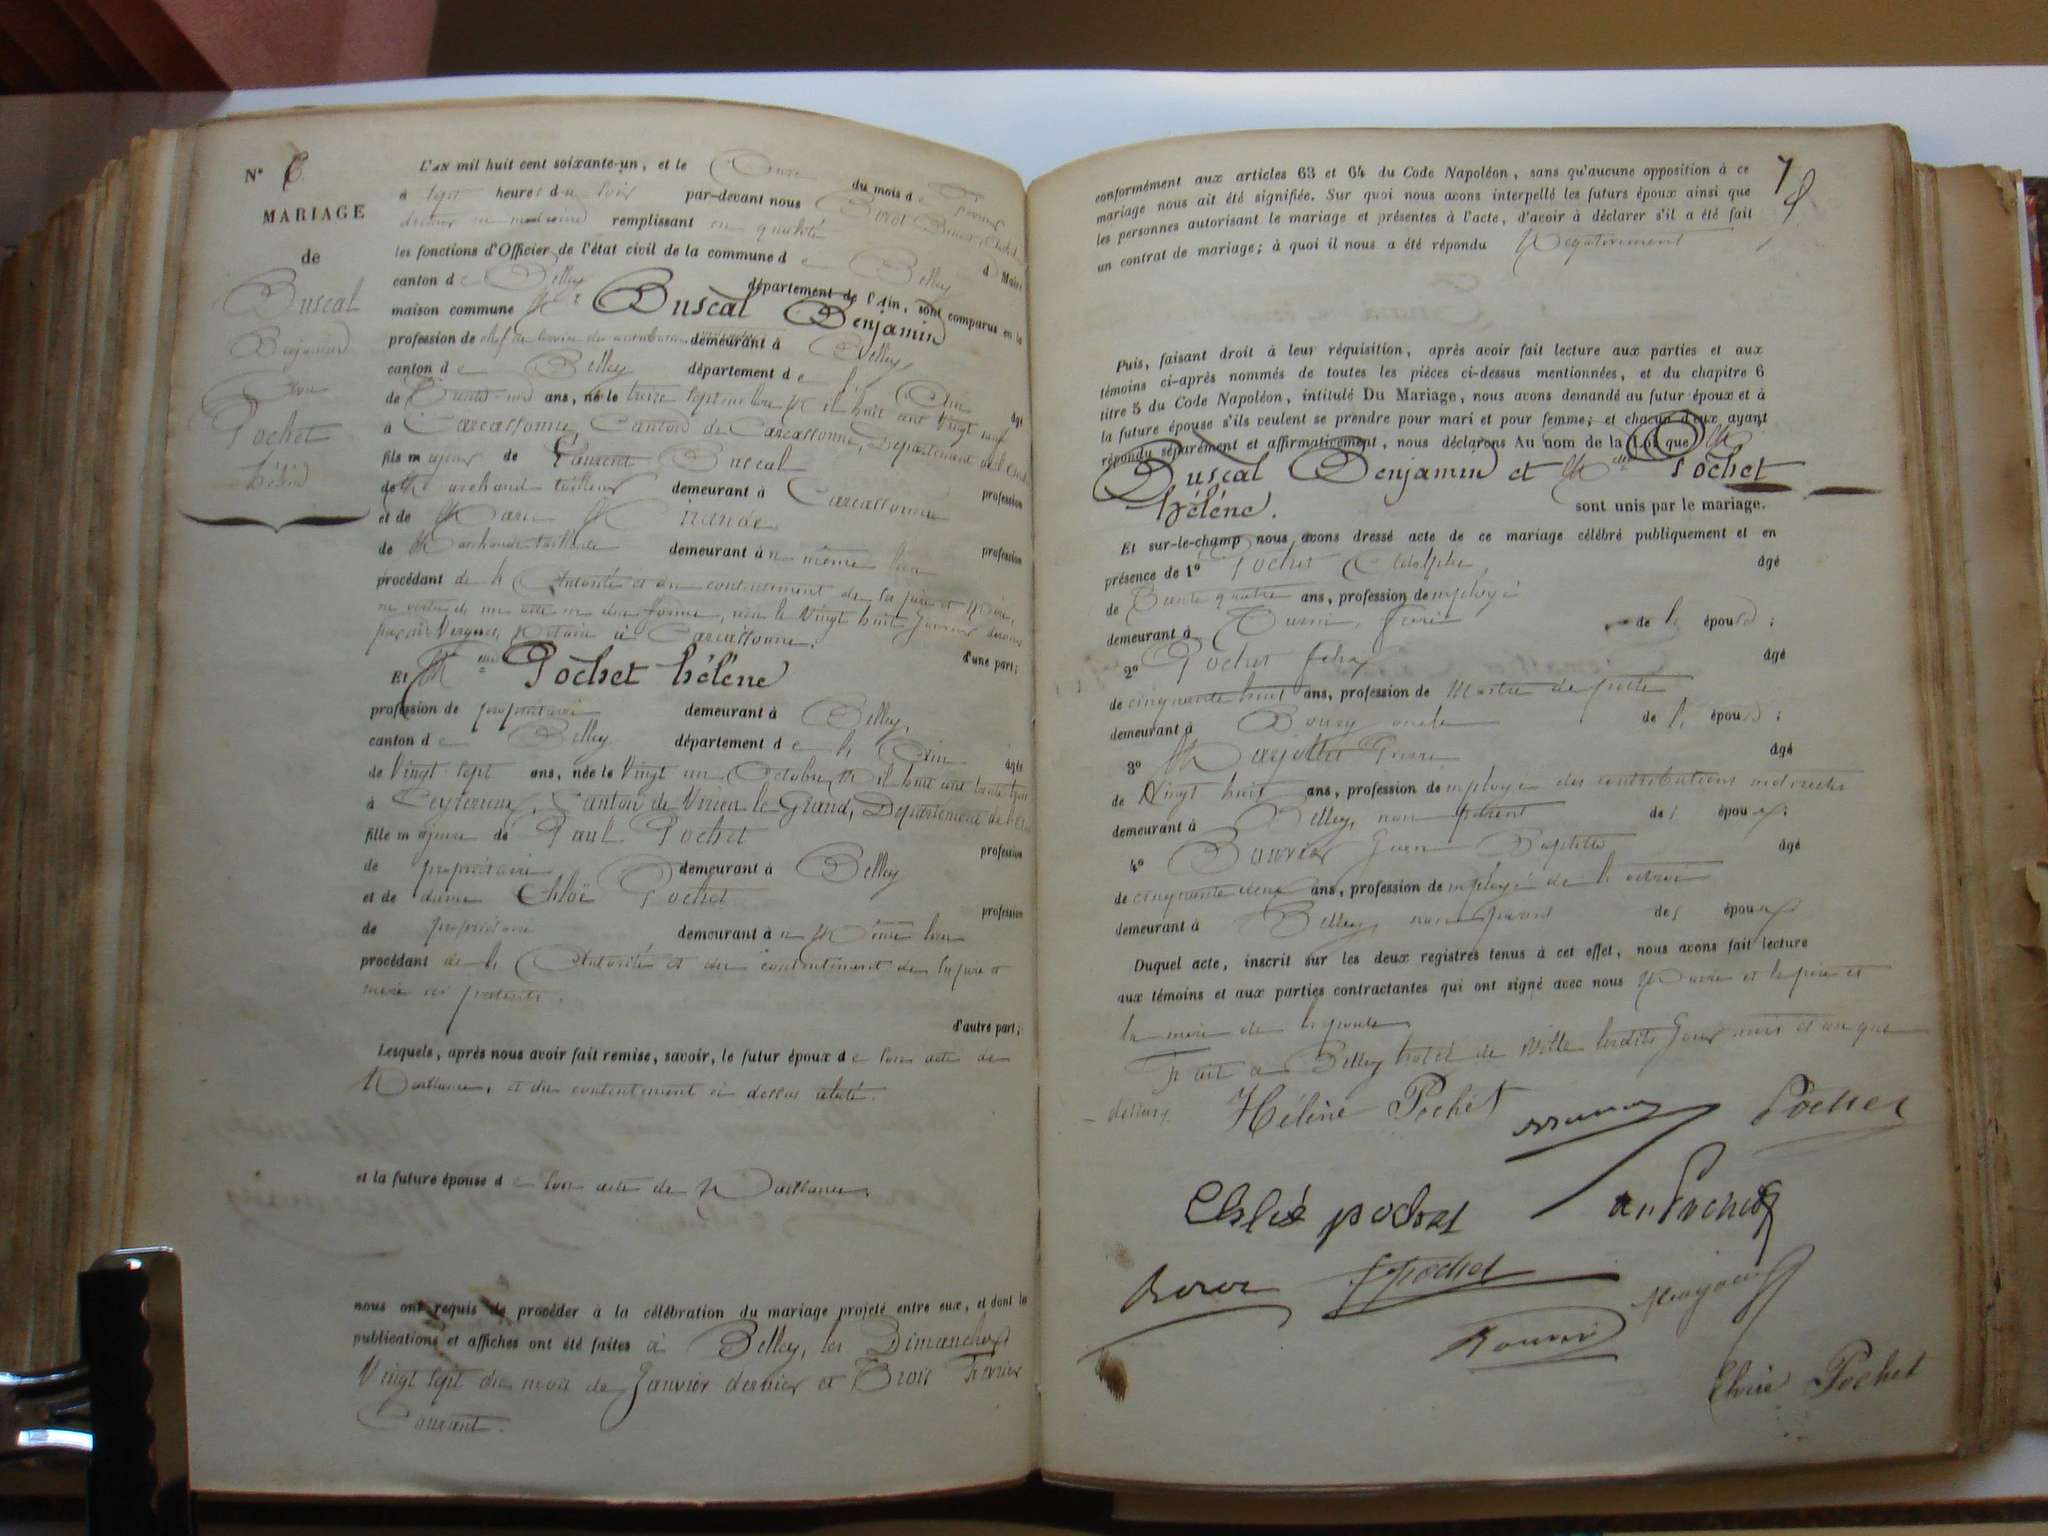 N° 6
MARIAGE
de
Buscal
Benjamin
Avec
Pochet
hélène
L'AN mil huit cent soixante-un, et le Onze du mois de Février
à sept heures du soir par-devant nous
docteur en médecine remplissant en qualité d Maire
les fonctions d'Officier de l'état civil de la commune de Belley
canton de Belley département de l'Ain, sont comparus en la
maison commune Mr Buscal Benjamin
profession de chef de service des contributions demeurant à Belley,
canton de Belley département de l'Ain âgé
de Trente-un ans, né le treize septembre Mil huit cent Vingt neuf
à Carcassonne, Canton de Carcassonne, Département de l'Aude
fils majeur de Laurent Buscal profession
de Marchand tailleur demeurant à Carcassonne
et de Marie profession
de Marchande tailleuse demeurant à u même lieu
procédant de l'Autorité et du consentement de ses père et Mère,
en vertu de un acte en due forme, reçu le Vingt huit Janvier dernier
par Vergnes, Notaire à Carcassonne. d'une part;
Et Melle Pochet hélène
profession de propriétaire demeurant à Belley,
canton de Belley département de l'Ain âgée
de Vingt sept ans, née le Vingt un Octobre Mil huit cent trente trois
à Ceyzerieux, Canton de Virieu le Grand, Département de l'Ain
fille majeure de Paul Pochet profession
de propriétaire demeurant à Belley
et de dame Chloë Pochet profession
de propriétaire demeurant à u Même lieu
procédant de l'Autorité et du consentement de ses père et
mère ici présents. d'autre part;
Lesquels, après nous avoir fait remise, savoir, le futur époux de son acte de
Naissance, et du consentement ci dessus relaté.
et la future épouse de son acte de Naissance,
nous ont requis de procéder à la célébration du mariage projeté entre eux, et dont les
publications et affiches ont été faites à Belley, les Dimanches
Vingt sept du mois de Janvier dernier et Trois Février
Courant.
7
conformément aux articles 63 et 64 du Code Napoléon, sans qu'aucune opposition à ce
mariage nous ait été signifiée. Sur quoi nous avons interpellé les futurs époux ainsi que
les personnes autorisant le mariage et présentes à l'acte, d'avoir à déclarer s'il a été fait
un contrat de mariage; à quoi il nous a été répondu Négativement
Puis, faisant droit à leur réquisition, après avoir fait lecture aux parties et aux
témoins ci-après nommés de toutes les pièces ci-dessus mentionnées, et du chapitre 6
titre 5 du Code Napoléon, intitulé Du Mariage, nous avons demandé au futur époux et à
la future épouse s'ils veulent se prendre pour mari et pour femme; et chacun d'eux ayant
répondu séparément et affirmativement, nous déclarons Au nom de la Loi que Mr
Buscal Benjamin et Melle Pochet
hélène. sont unis par le mariage.
Et sur-le-champ nous avons dressé acte de ce mariage célébré publiquement et en
présence de 1° Pochet Adolphe, âgé
de Trente quatre ans, profession de employé
demeurant à Turin, frère de l'épouse;
2° Pochet félix âgé
de cinquante huit ans, profession de Maître de poste
demeurant à Bourg oncle de l'épouse;
3° Pierre âgé
de Vingt huit ans, profession de employé des contributions indirectes
demeurant à Belley, non parent des époux;
4° Bouvier Jean Baptiste âgé
de cinquante deux ans, profession de employé de l'octroi
demeurant à Belley, non parent des époux
Duquel acte, inscrit sur les deux registres tenus à cet effet, nous avons fait lecture
aux témoins et aux parties contractantes qui ont signé avec nous Maire et le père et
la mère de l'épouse
Fait à Belley hôtel de Ville lesdits Jour mois et an que
dessus.
Hélène Pochet Pochet
Chloé pochet
F Pochet
Elvire Pochet